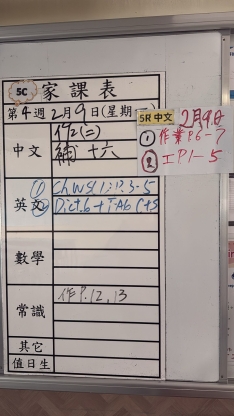 5C 家課表
第4週2月9日(星期一)
中文
作(二)
補 十六
英文
① Ch. WS1: P.3-5
② Dict. 6 +
數學
常識
作P.12,13
其它
值日生
5R 中文 2月9日
① 作業P.6-7
② 工P1-5